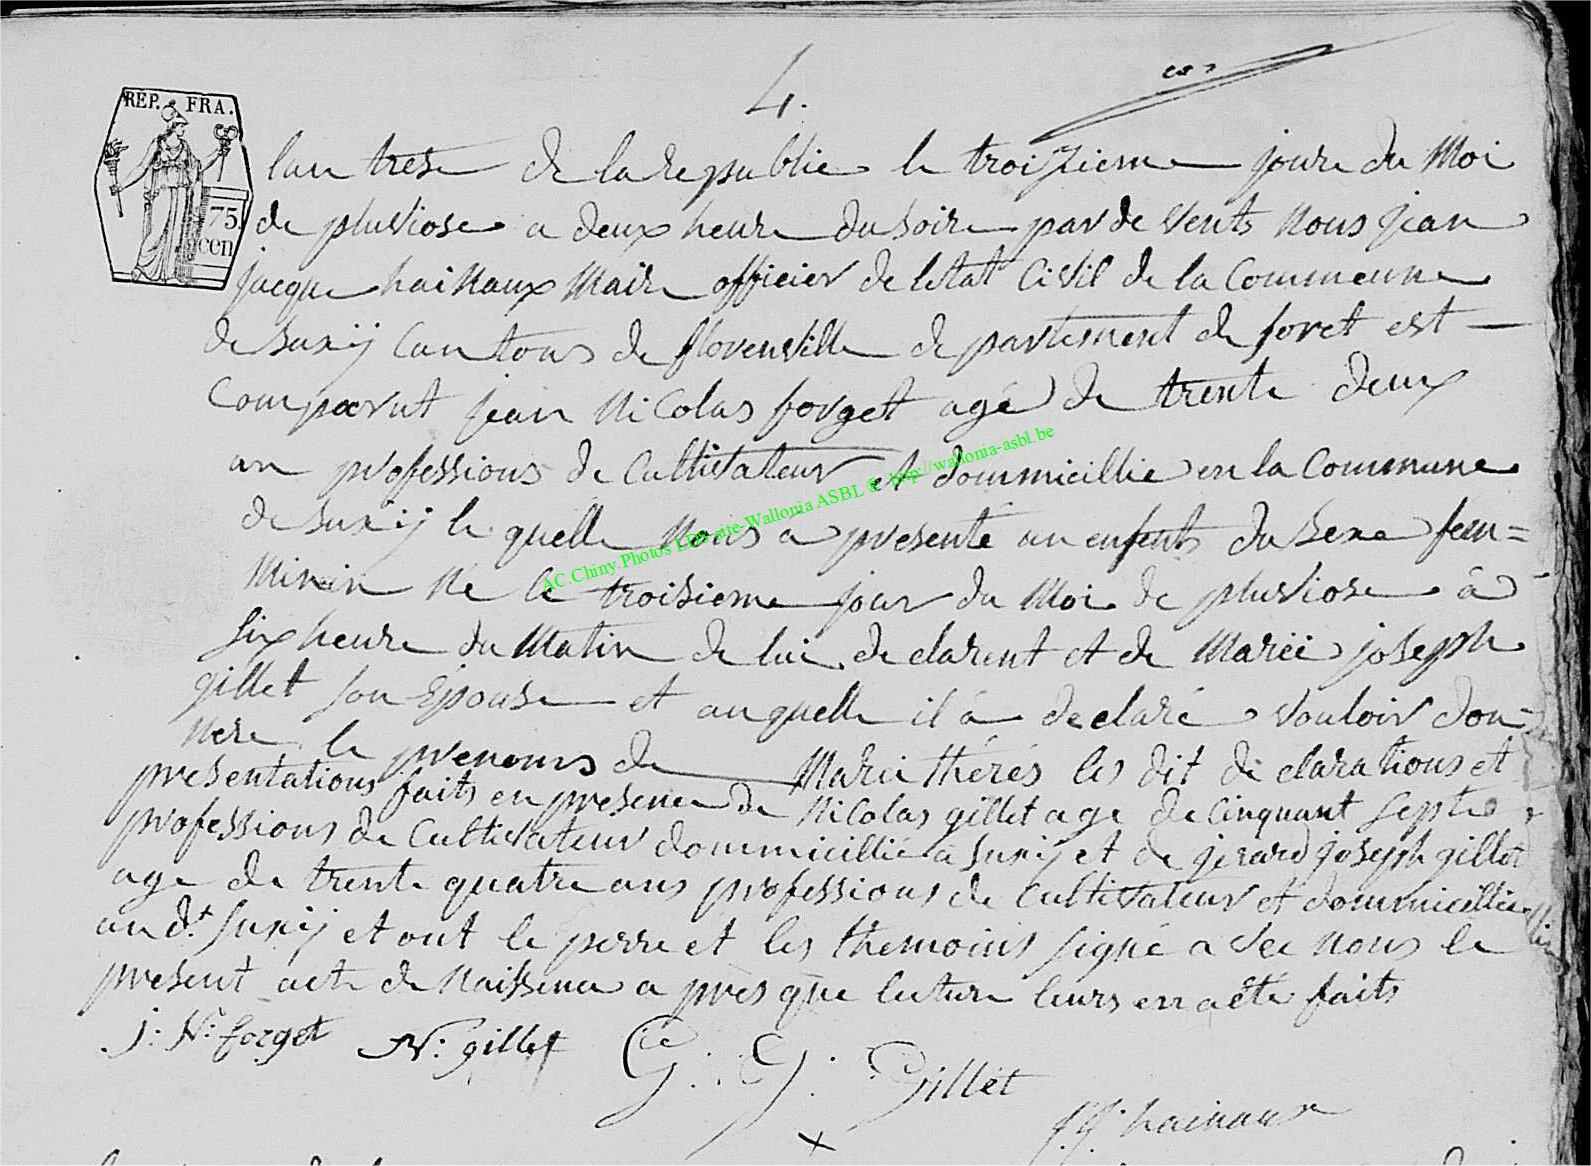 4.
REP. FRA.
75.
cen
lan trese de la republie le troizieme jour du Moi
de pluviose a deux heure du soire par de vents Nous jean
jacque hainaux Maire officier de lstat Civil de la Commeune
de Suxÿ Cantons de florenville de partement de foret est
Comparut jean NiColas forget agé de trente deux
an professions de Cultivateur et dommicillie en la Commune
de Suxÿ le quelle Nous a presenté un enfents du sexe fem=
Minin Né le troisieme jour du Moi de pluviose à
six heure du Matin de lui de clarent et de Marie joseph
gillet son Epouse et auquelle il à declaré vouloir don=
nere le prenoms de Marie thérés les dit de clarations et
presentations faits en presence de Nicolas gillet age de cinquant septe
professions de Cultivateur dommicillié a Suxÿ et de jerard joseph gillet
age de trente quatre ans professions de Cultivateur et dommicillie
au dt Suxÿ et ont le perre et les themoins signé a vec nous le
present acte de Naissence a près que lecture leurs en a été faits
j: N: forget N: gillet G: J: Gillet
J: J: hainaux
AC.Chiny.Photos LDB site-Wallonia ASBL © http://wallonia-asbl.be